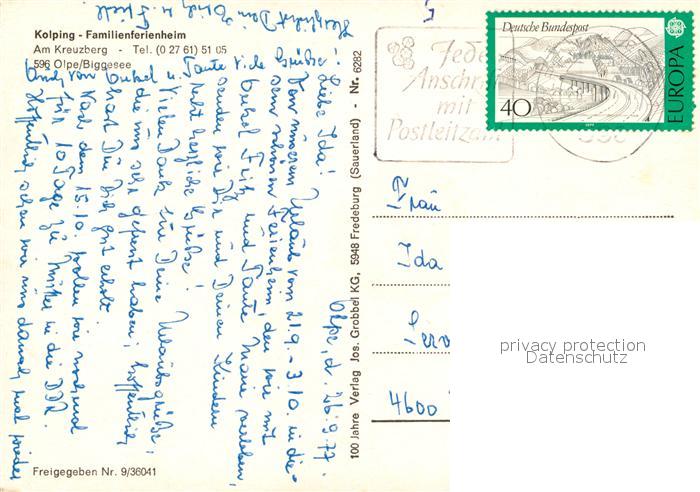 Kolping - Familienferienheim
Am Kreuzberg - Tel. (0 27 61) 51 05
596 Olpe/Biggesee
Olpe, d. 26.9.77.
Liebe Ida!
Von unserem Urlaub vom 21.9. - 3.10. in die-
sem schönen Ferienheim, den wir mit
Onkel Fritz und Tante Marie verleben,
senden wir Dir und Deinen Kindern
recht herzliche Grüße!
Vielen Dank für Deine Urlaubsgrüße,
die uns sehr gefreut haben; hoffentlich
hast Du Dich gut erholt.
Nach dem 15.10. wollen wir nochmal
für 10 Tage zu in die DDR.
Hoffentlich sehen wir uns danach mal wieder
Auch von Onkel u. Tante viele Grüße!
Herzlichst Dein u.
100 Jahre Verlag Jos. Grobbel KG, 5948 Fredeburg (Sauerland) - Nr. 6282
Freigegeben Nr. 9/36041
Jede
Anschrift
mit
Postleitzahl
Deutsche Bundespost
40
EUROPA
Frau
Ida
4600
privacy protection
Datenschutz